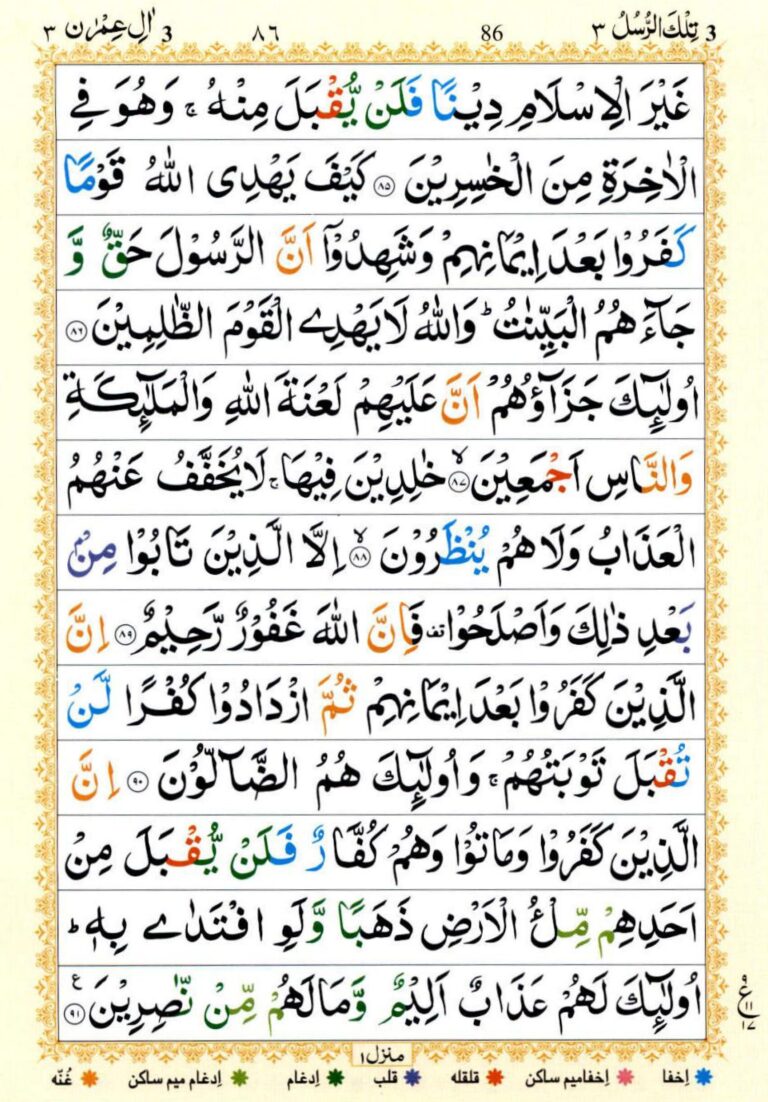 3 تِلْكَ الرُّسُلُ ٣ 86 ٨٦ 3 اٰلِ عِمْرٰن ٣
غَيْرَ الْاِسْلَامِ دِيْنًا فَلَنْ يُّقْبَلَ مِنْهُ ۚ وَهُوَ فِي
الْاٰخِرَةِ مِنَ الْخٰسِرِيْنَ ﴿٨٥﴾ كَيْفَ يَهْدِى اللّٰهُ قَوْمًا
كَفَرُوْا بَعْدَ اِيْمَانِهِمْ وَشَهِدُوْٓا اَنَّ الرَّسُوْلَ حَقٌّ وَّ
جَآءَهُمُ الْبَيِّنٰتُ ؕ وَاللّٰهُ لَا يَهْدِى الْقَوْمَ الظّٰلِمِيْنَ ﴿٨٦﴾
اُولٰٓئِكَ جَزَآؤُهُمْ اَنَّ عَلَيْهِمْ لَعْنَةَ اللّٰهِ وَالْمَلٰٓئِكَةِ
وَالنَّاسِ اَجْمَعِيْنَ ﴿٨٧﴾ ۙ خٰلِدِيْنَ فِيْهَا ۚ لَا يُخَفَّفُ عَنْهُمُ
الْعَذَابُ وَلَا هُمْ يُنْظَرُوْنَ ﴿٨٨﴾ ۙ اِلَّا الَّذِيْنَ تَابُوْا مِنْۢ
بَعْدِ ذٰلِكَ وَاَصْلَحُوْا قف فَاِنَّ اللّٰهَ غَفُوْرٌ رَّحِيْمٌ ﴿٨٩﴾ اِنَّ
الَّذِيْنَ كَفَرُوْا بَعْدَ اِيْمَانِهِمْ ثُمَّ ازْدَادُوْا كُفْرًا لَّنْ
تُقْبَلَ تَوْبَتُهُمْ ۚ وَاُولٰٓئِكَ هُمُ الضَّآلُّوْنَ ﴿٩٠﴾ اِنَّ
الَّذِيْنَ كَفَرُوْا وَمَاتُوْا وَهُمْ كُفَّارٌ فَلَنْ يُّقْبَلَ مِنْ
اَحَدِهِمْ مِّلْءُ الْاَرْضِ ذَهَبًا وَّلَوِ افْتَدٰى بِهٖ ؕ
اُولٰٓئِكَ لَهُمْ عَذَابٌ اَلِيْمٌ وَّمَا لَهُمْ مِّنْ نّٰصِرِيْنَ ﴿٩١﴾ ع
٩
ع
١١
١٧
منزل ١
اِخفا اِخفامیم ساکن قلقله قلب اِدغام اِدغام میم ساکن غُنّه